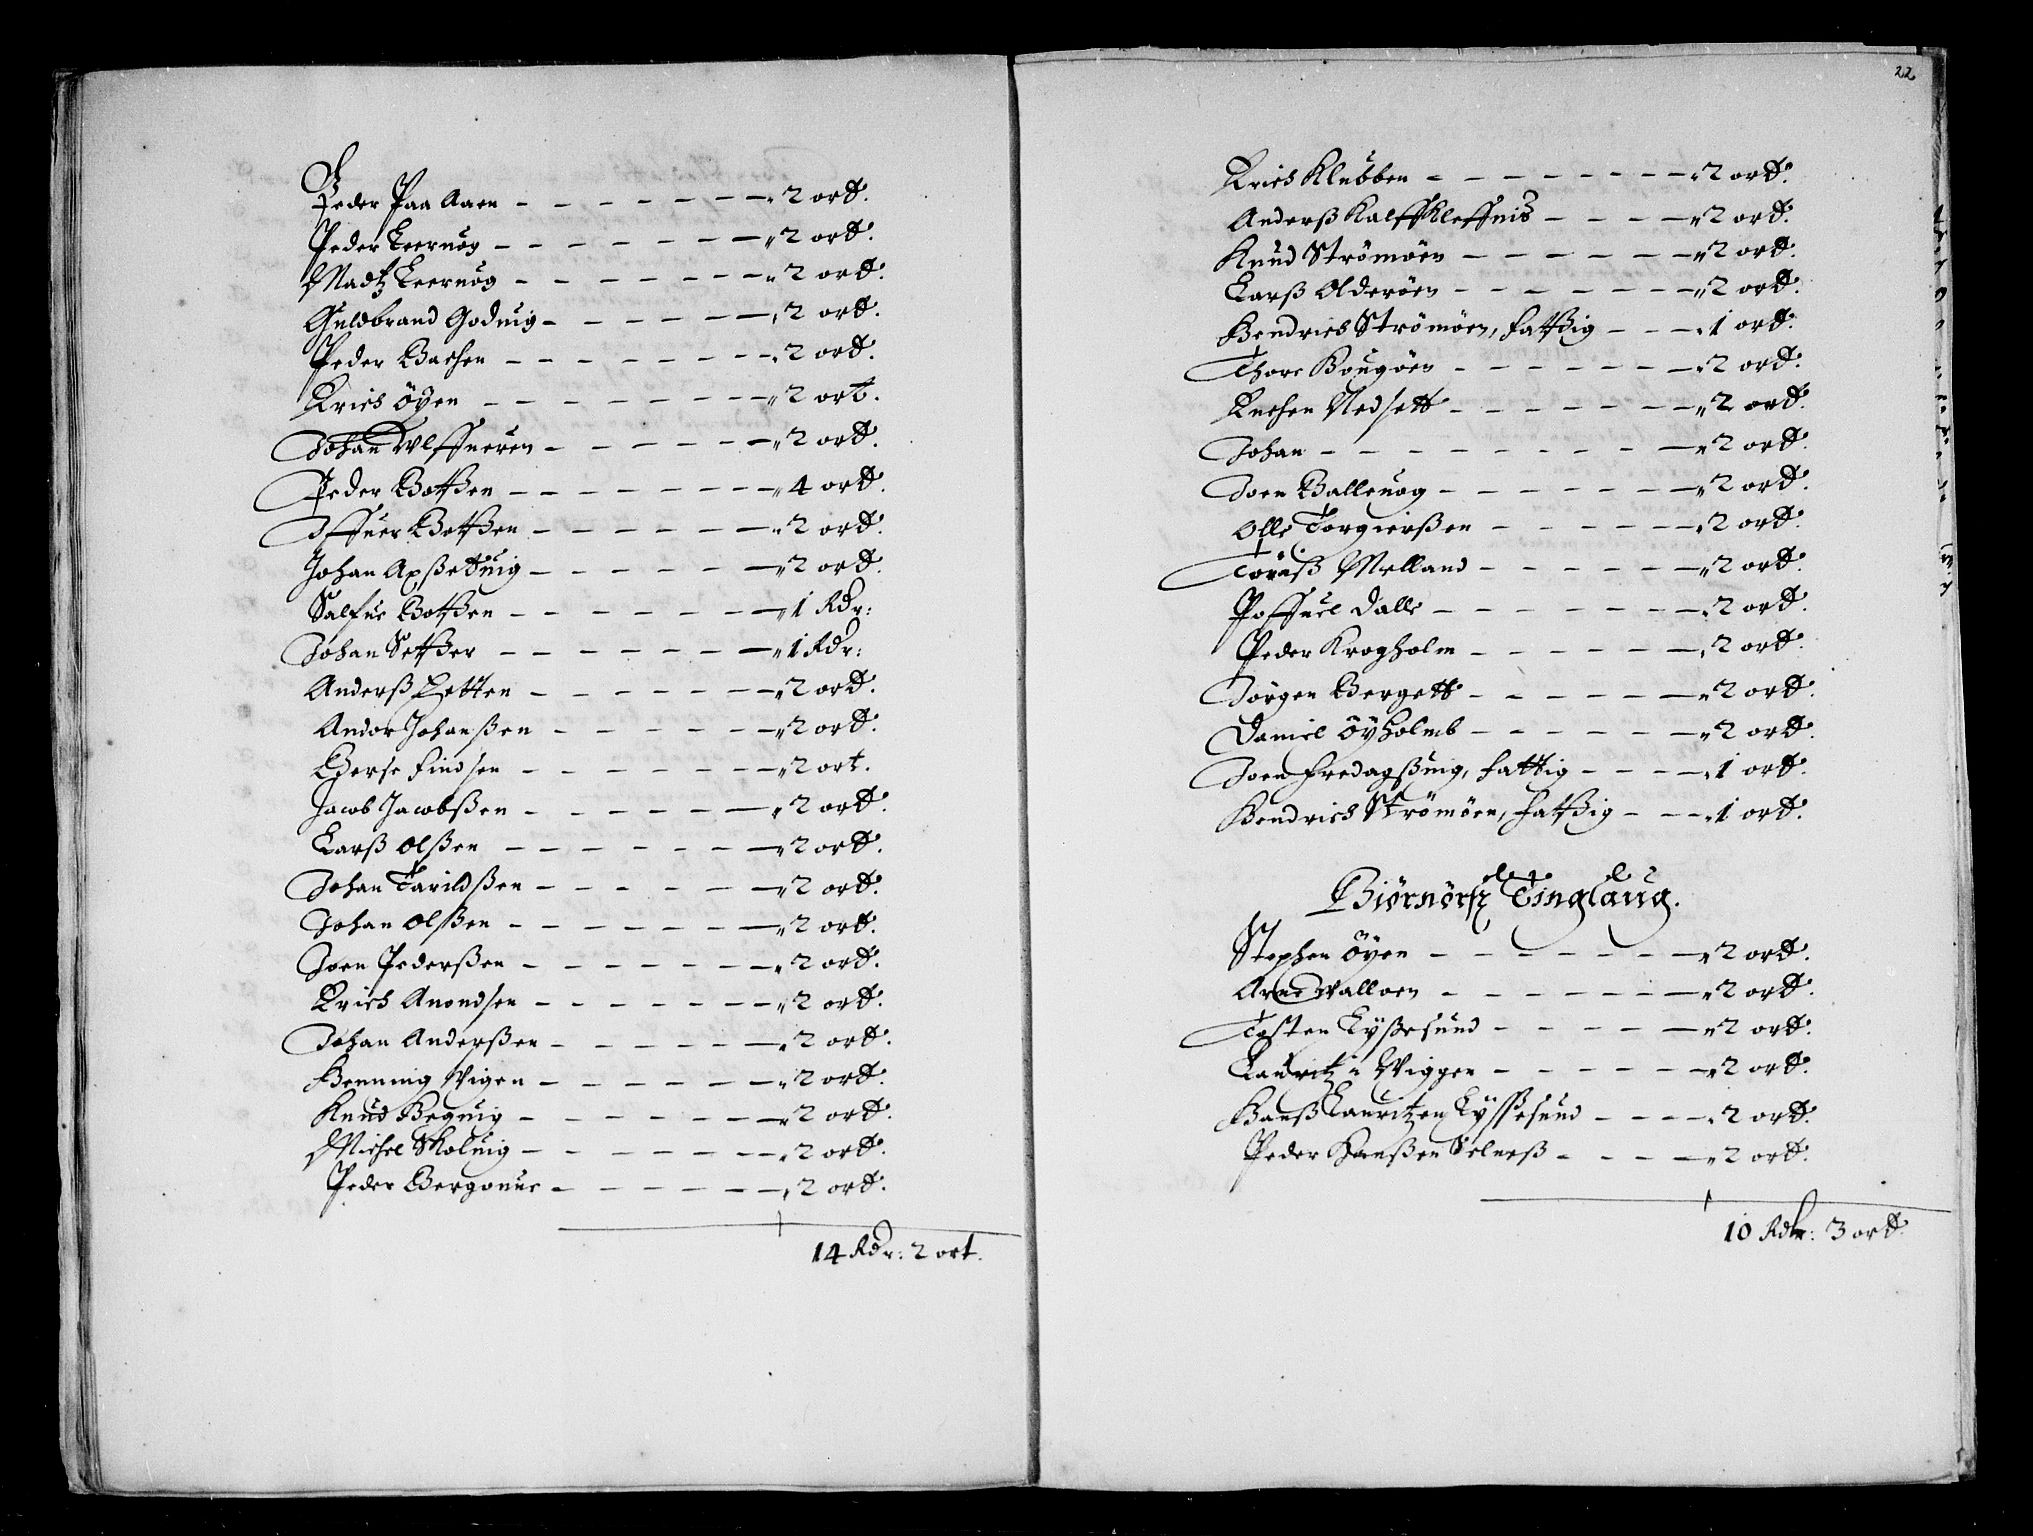 Peder Paa Aaen - - - - - - - 2 ort.
Peder Leeruog - - - - - - - 2 ort.
Madtz Leeruog - - - - - - - 2 ort.
Guldbrand Goduig - - - - - - 2 ort.
Peder Bachen - - - - - - - 2 ort.
Erich Öyen - - - - - - - 2 ort.
Johan Vlffueren - - - - - - 2 ort.
Peder Botßen - - - - - - - 4 ort.
Iffuer Botßen - - - - - - - 2 ort.
Johan Apßetuig - - - - - - 2 ort.
Salfue Botßen - - - - - - - 1 Rdr:
Johan Setßer - - - - - - - 1 Rdr:
Anderß Zetten - - - - - - - 2 ort.
Andor Johanßen - - - - - - 2 ort.
Berse Findsen - - - - - - - 2 ort.
Jacob Jacobßen - - - - - - 2 ort.
Larß Olßen - - - - - - - 2 ort.
Johan Tarildßen - - - - - - 2 ort.
Johan Olßen - - - - - - - 2 ort.
Joen Pederßen - - - - - - - 2 ort.
Erich Anondsen - - - - - - 2 ort.
Johan Anderßen - - - - - - 2 ort.
Henning Vigen - - - - - - - 2 ort.
Knud Beguig - - - - - - - 2 ort.
Michel Skoluig - - - - - - - 2 ort.
Peder Berganue - - - - - - 2 ort.
14 Rdr: 2 ort.
22
Erich Klubben - - - - - - - 2 ort.
Anderß Kalffkleffnis - - - - 2 ort.
Knud Strömöen - - - - - - 2 ort.
Larß Olderöen - - - - - - - 2 ort.
Hendrich Strömöen, fattßig - - - 1 ort.
Thore Hougöen - - - - - - - 2 ort.
Enchen Nedsett - - - - - - 2 ort.
Johan - - - - - - - - - 2 ort.
Joen Balleuog - - - - - - - 2 ort.
Olle Torgierßen - - - - - - 2 ort.
Töreß Melland - - - - - - 2 ort.
Poffuel Dalle - - - - - - - 2 ort.
Peder Krogholm - - - - - - 2 ort.
Jörgen Bergett - - - - - - 2 ort.
Daniel Öyholmb - - - - - - 2 ort.
Joen Fredagßuig, fattig - - - - 1 ort.
Hendrich Strömöen, fattßig - - - 1 ort.
Biørnørsz Tinglaug.
Stephen Öyen - - - - - - - 2 ort.
Arne Valloen - - - - - - - 2 ort.
Tosten Lyßesund - - - - - 2 ort.
Lauritz i Viggen - - - - - - 2 ort.
Hanß Lauritzen Lyssesund - - - - 2 ort.
Peder Hanßen Selneß - - - - 2 ort.
10 Rdlr: 3 ort.